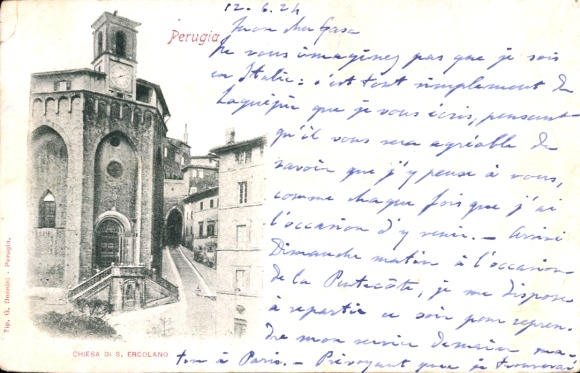 12.6.24
Perugia
Mon cher Gase
Ne vous imaginez pas que je sois
en Italie : c'est tout simplement de
Laguépie que je vous écris, pensant
qu'il vous sera agréable de
savoir que j'y pense à vous,
comme chaque fois que j'ai
l'occasion d'y venir. — Arrivé
Dimanche matin à l'occasion
de la Pentecôte, je me dispose
à repartir ce soir pour repren-
dre mon service demain ma-
tin à Paris. — Prévoyant que je trouverai
CHIESA DI S. ERCOLANO
Tip. G. Donnini - Perugia.